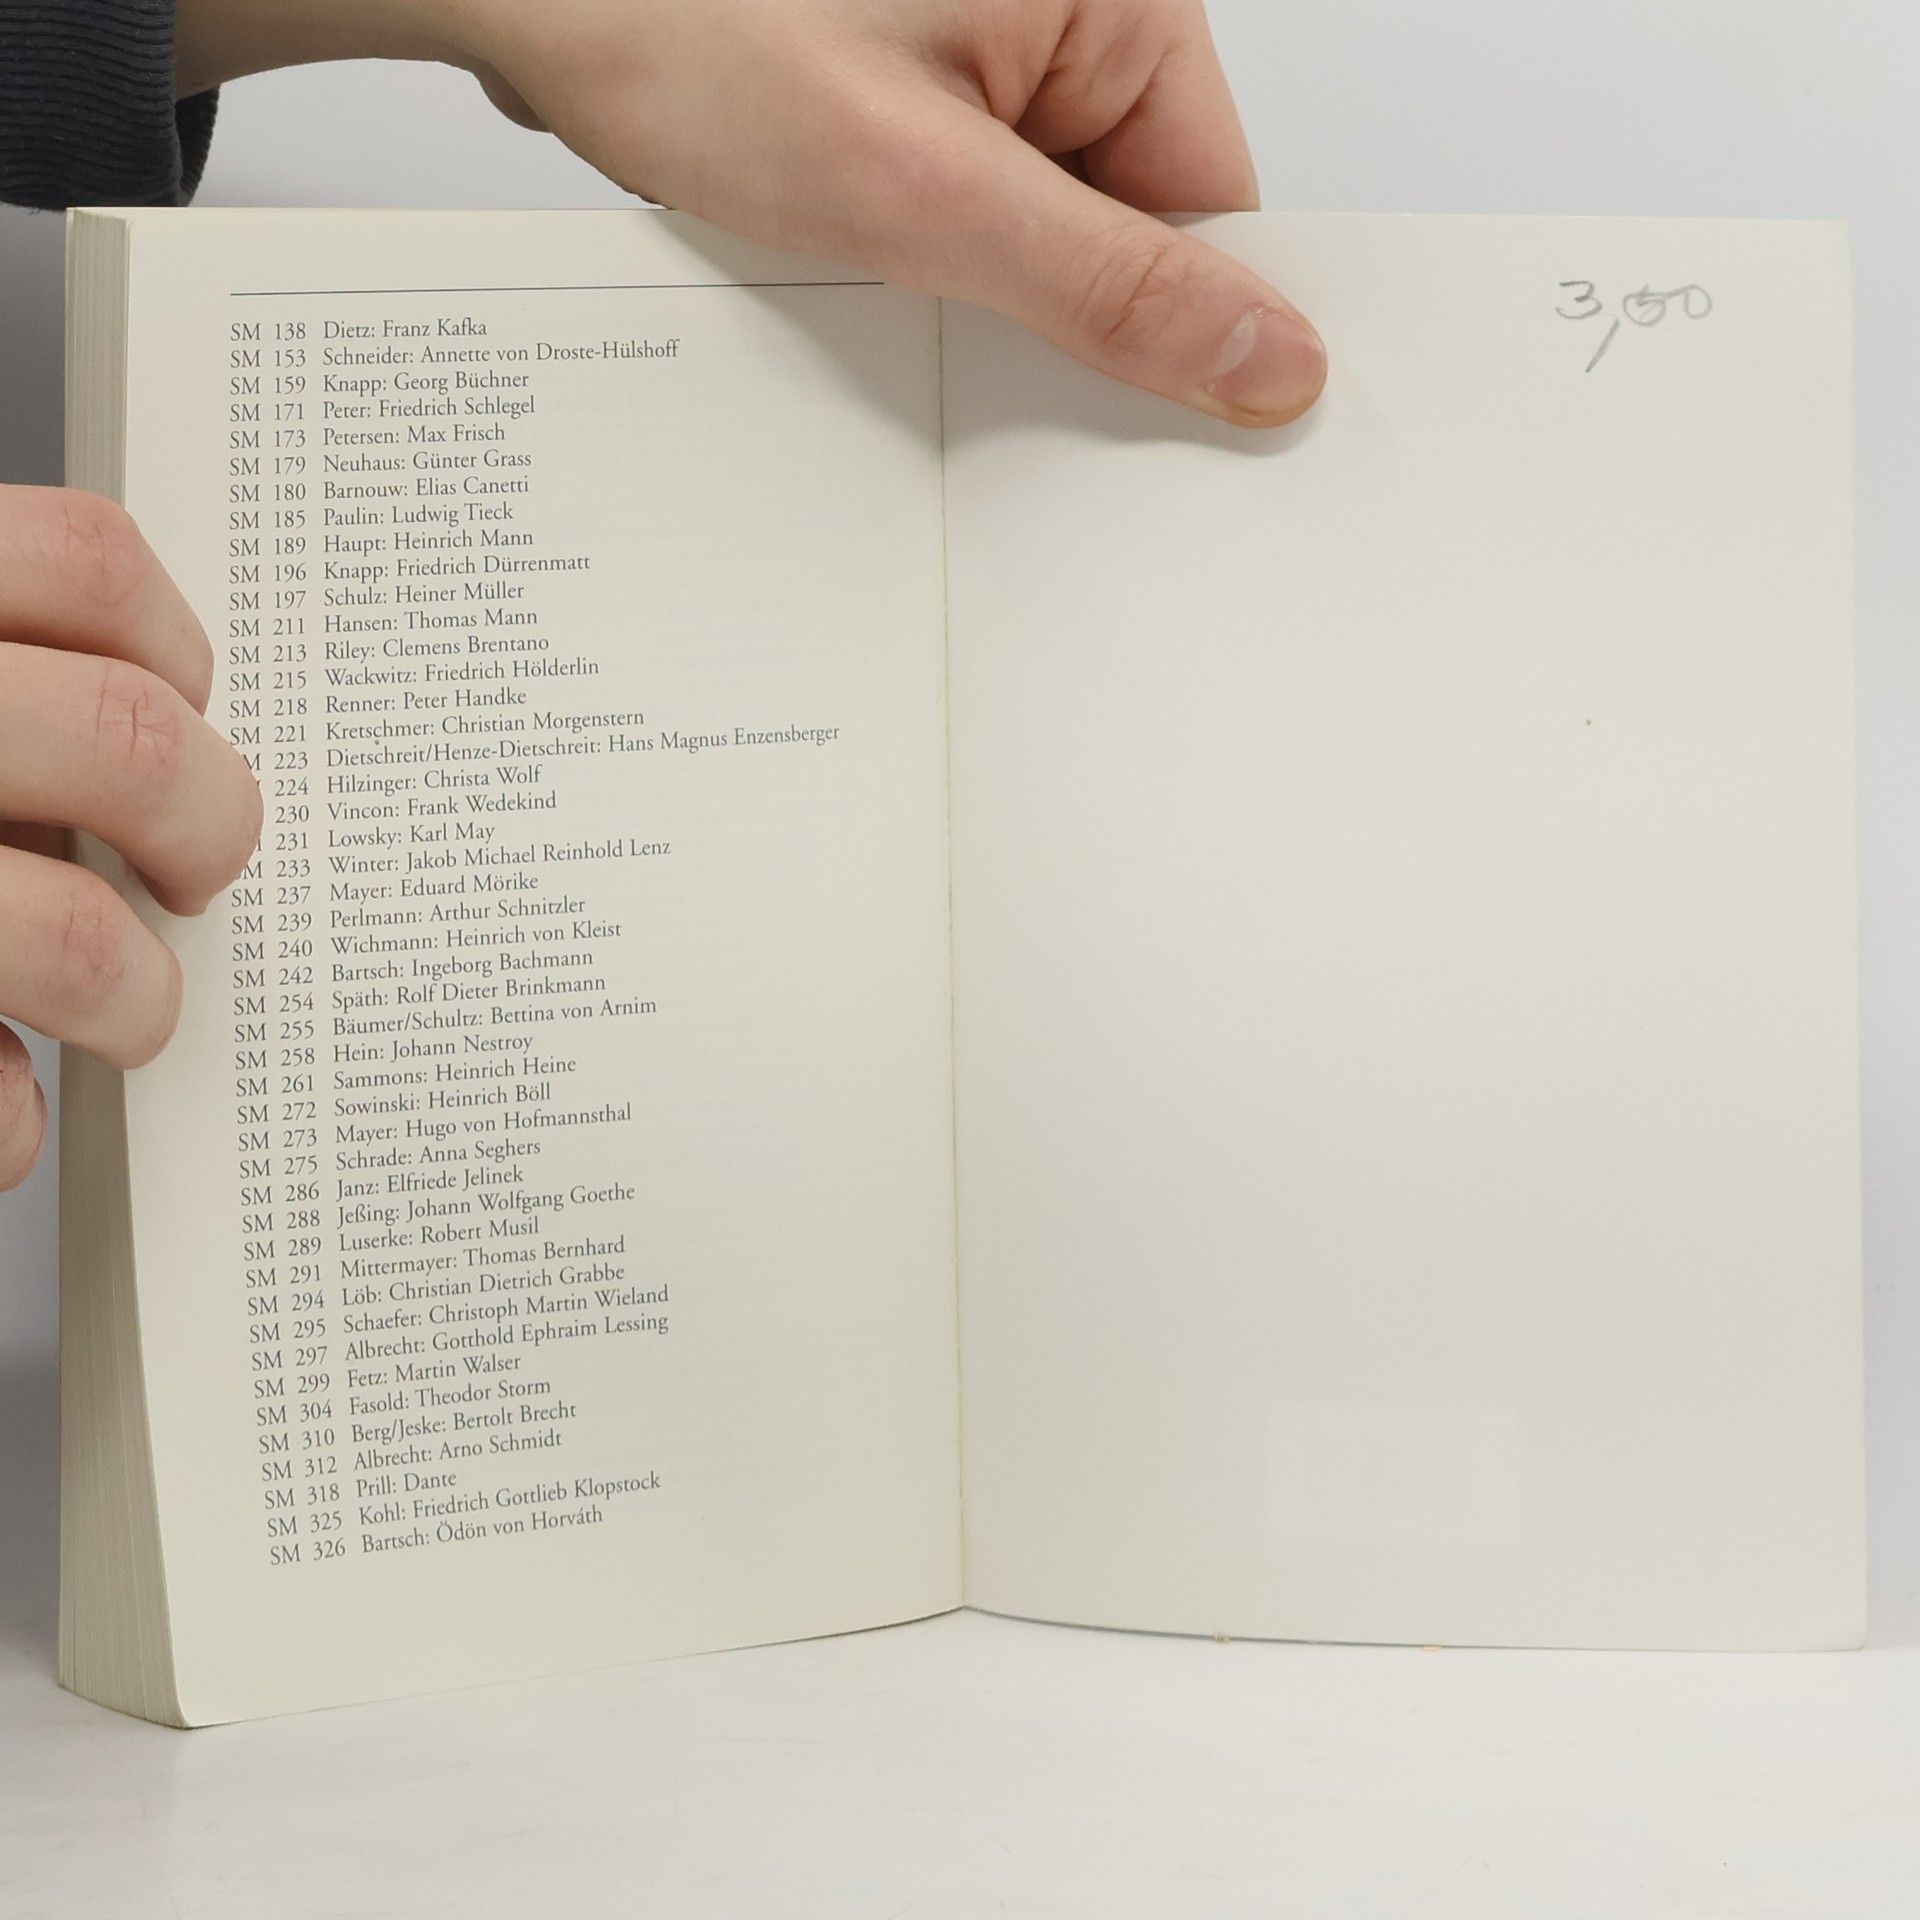 SM 138 Dietz: Franz Kafka
SM 153 Schneider: Annette von Droste-Hülshoff
SM 159 Knapp: Georg Büchner
SM 171 Peter: Friedrich Schlegel
SM 173 Petersen: Max Frisch
SM 179 Neuhaus: Günter Grass
SM 180 Barnouw: Elias Canetti
SM 185 Paulin: Ludwig Tieck
SM 189 Haupt: Heinrich Mann
SM 196 Knapp: Friedrich Dürrenmatt
SM 197 Schulz: Heiner Müller
SM 211 Hansen: Thomas Mann
SM 213 Riley: Clemens Brentano
SM 215 Wackwitz: Friedrich Hölderlin
SM 218 Renner: Peter Handke
SM 221 Kretschmer: Christian Morgenstern
M 223 Dietschreit/Henze-Dietschreit: Hans Magnus Enzensberger
224 Hilzinger: Christa Wolf
230 Vincon: Frank Wedekind
231 Lowsky: Karl May
M 233 Winter: Jakob Michael Reinhold Lenz
SM 237 Mayer: Eduard Mörike
SM 239 Perlmann: Arthur Schnitzler
SM 240 Wichmann: Heinrich von Kleist
SM 242 Bartsch: Ingeborg Bachmann
SM 254 Späth: Rolf Dieter Brinkmann
SM 255 Bäumer/Schultz: Bettina von Arnim
SM 258 Hein: Johann Nestroy
SM 261 Sammons: Heinrich Heine
SM 272 Sowinski: Heinrich Böll
SM 273 Mayer: Hugo von Hofmannsthal
SM 275 Schrade: Anna Seghers
SM 286 Janz: Elfriede Jelinek
SM 288 Jeßing: Johann Wolfgang Goethe
SM 289 Luserke: Robert Musil
SM 291 Mittermayer: Thomas Bernhard
SM 294 Löb: Christian Dietrich Grabbe
SM 295 Schaefer: Christoph Martin Wieland
SM 297 Albrecht: Gotthold Ephraim Lessing
SM 299 Fetz: Martin Walser
SM 304 Fasold: Theodor Storm
SM 310 Berg/Jeske: Bertolt Brecht
SM 312 Albrecht: Arno Schmidt
SM 318 Prill: Dante
SM 325 Kohl: Friedrich Gottlieb Klopstock
SM 326 Bartsch: Ödön von Horváth
3,50